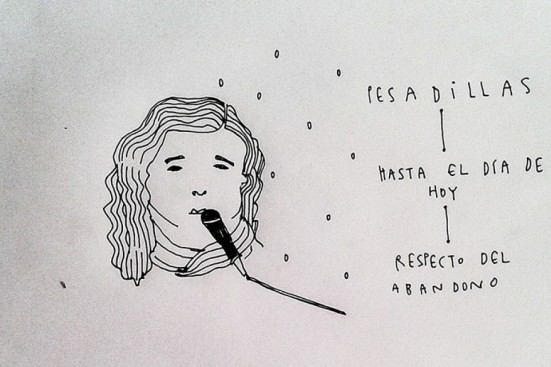 PESADILLAS
HASTA EL DÍA DE
HOY
RESPECTO DEL
ABANDONO